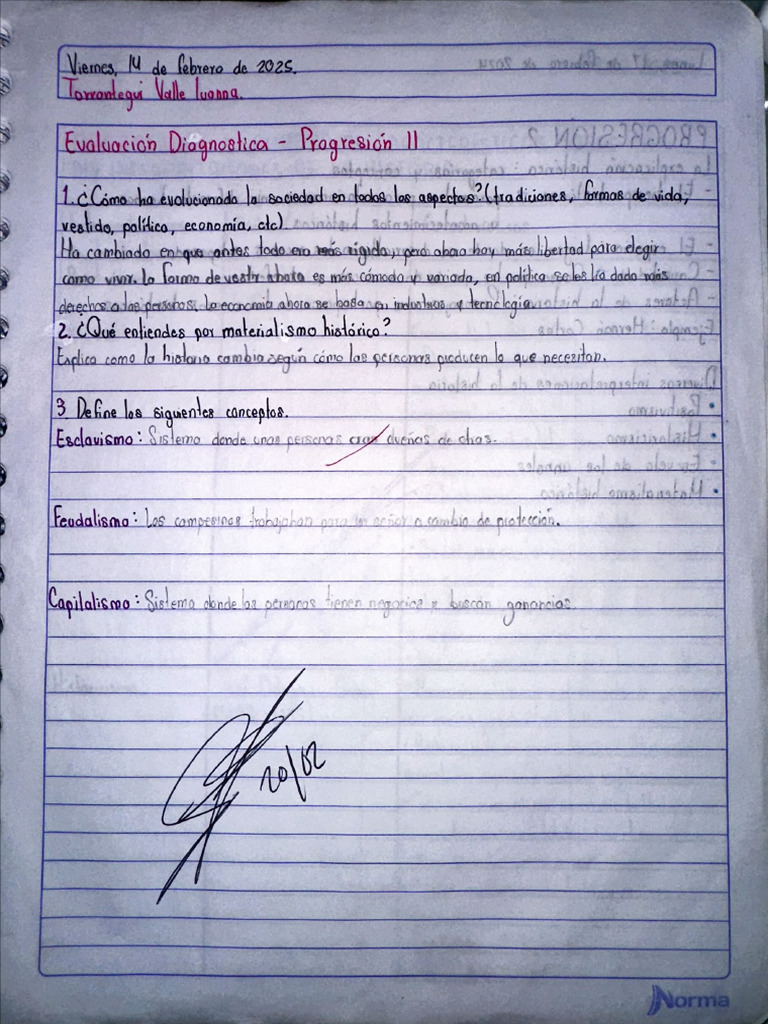 Viernes, 14 de febrero de 2025.
Torrontegui Valle Ivanna.
Evaluación Diagnostica - Progresión 11
1. ¿Cómo ha evolucionado la sociedad en todos los aspectos? (tradiciones, formas de vida,
vestido, política, economía, etc)
Ha cambiado en que antes todo era más rígido, pero ahora hay más libertad para elegir
como vivir. La forma de vestir ahora es más cómoda y variada, en política se les ha dado más
derechos a las personas, la economía ahora se basa en industrias y tecnología.
2. ¿Qué entiendes por materialismo histórico?
Explica como la historia cambia según cómo las personas producen lo que necesitan.
3. Define los siguientes conceptos.
Esclavismo: Sistema donde unas personas eran dueñas de otras.
Feudalismo: Los campesinos trabajaban para los señor a cambio de protección.
Capitalismo: Sistema donde las personas tienen negocios y buscan ganancias.
20/02
Norma